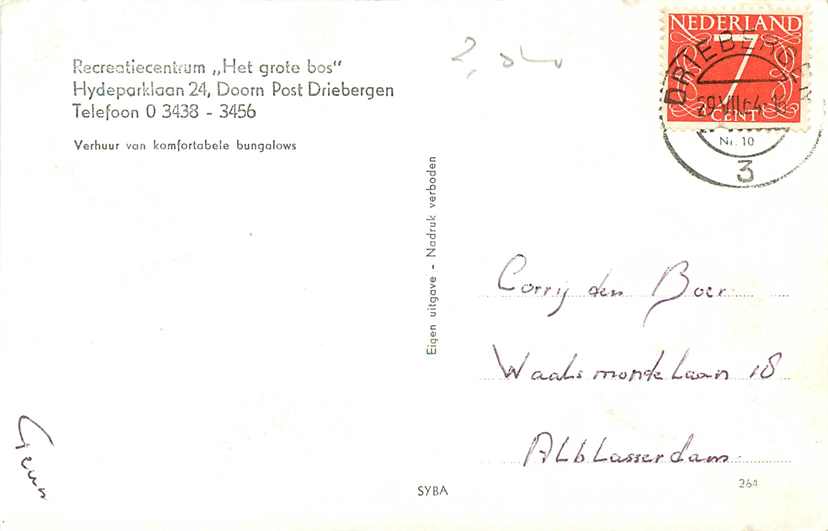 Recreatiecentrum „Het grote bos"
Hydeparklaan 24, Doorn Post Driebergen
Telefoon 0 3438 - 3456
Verhuur van komfortabele bungalows
NEDERLAND
7
CENT
DRIEBERGEN
Nr. 10
3
Eigen uitgave - Nadruk verboden
Corry den Boer
Waalsmondelaan 18
Alblasserdam
SYBA
264